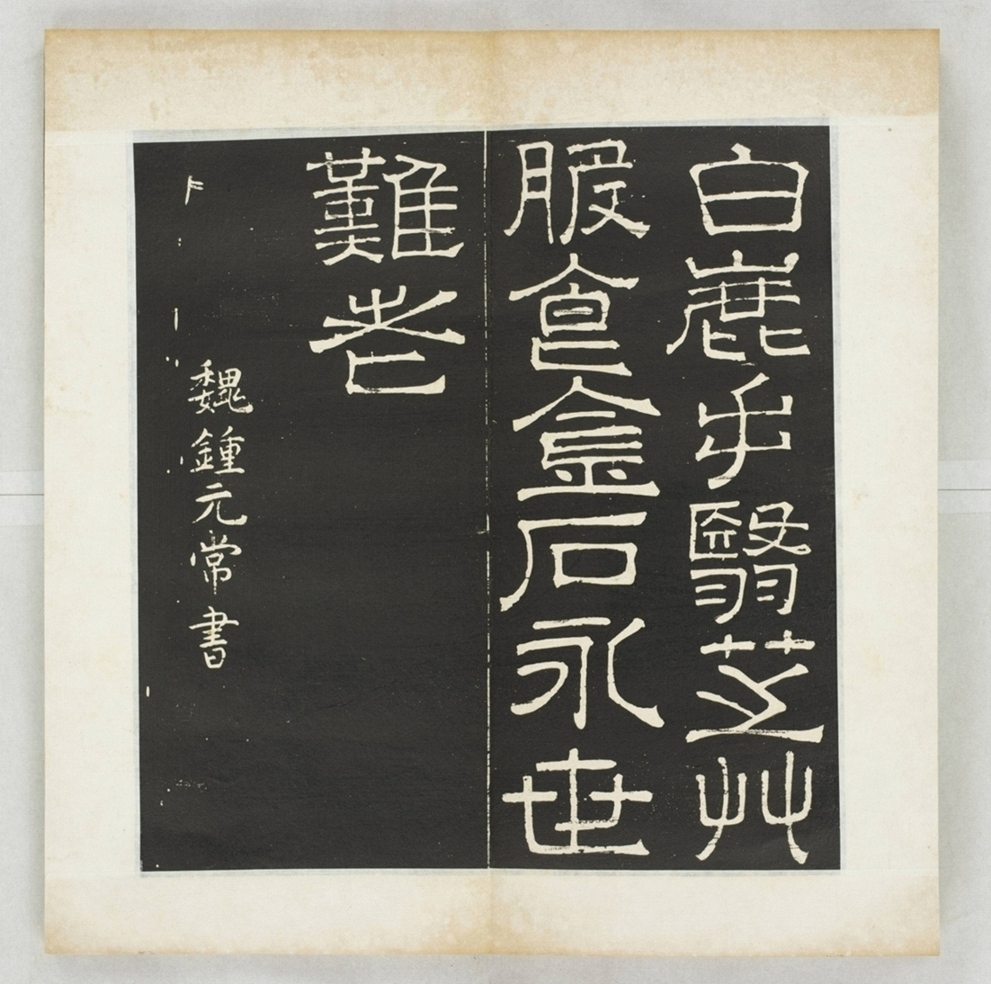 白鹿手翳芝艸
服食金石永世
難老
魏鍾元常書